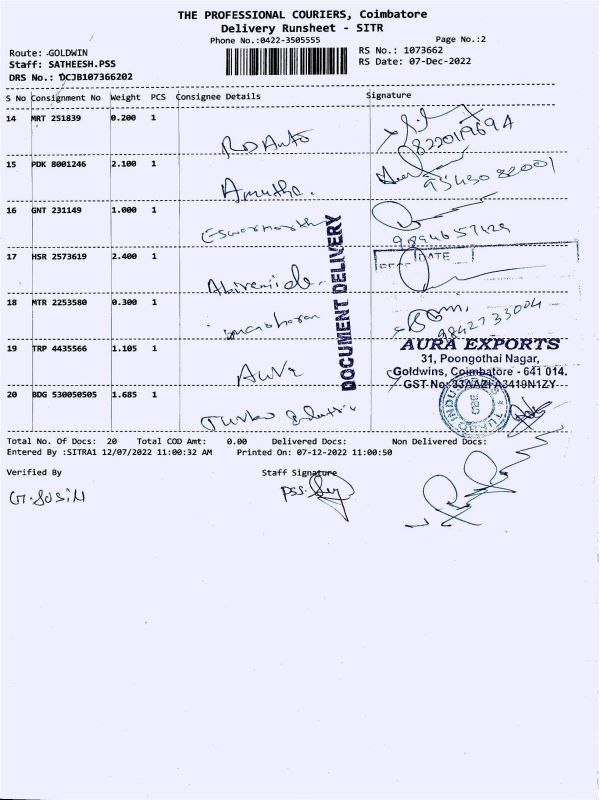 THE PROFESSIONAL COURIERS, Coimbatore
Delivery Runsheet - SITR
Phone No.:0422-3505555
Page No.:2
Route: GOLDWIN
Staff: SATHEESH.PSS
DRS No.: DCJB107366202
RS No.: 1073662
RS Date: 07-Dec-2022
S No Consignment No Weight PCS Consignee Details Signature
14 MRT 251839 0.200 1 RD Auto
15 PDK 8001246 2.100 1 Amutha.
16 GNT 231149 1.000 1
9894657429
17 HSR 2573619 2.400 1
DATE
18 MTR 2253580 0.300 1
9842733004
19 TRP 4435566 1.105 1
20 BDG 530050505 1.685 1
DOCUMENT DELIVERY
AURA EXPORTS
31, Poongothai Nagar,
Goldwins, Coimbatore - 641 014.
GST No: 33AAZFA3419N1ZY
Total No. Of Docs: 20 Total COD Amt: 0.00 Delivered Docs: Non Delivered Docs:
Entered By :SITRA1 12/07/2022 11:00:32 AM Printed On: 07-12-2022 11:00:50
Verified By
Staff Signature
G.JOSIN
PSS.